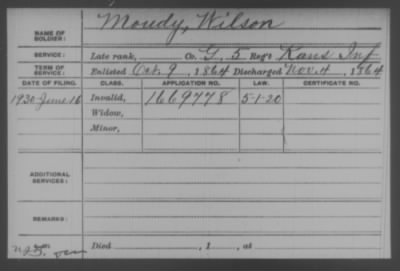 NAME OF SOLDIER: Moudy, Wilson
SERVICE: Late rank, Co. G, 5 Reg't Kans Inf
TERM OF SERVICE: Enlisted Oct. 9, 1864 Discharged Nov. 4, 1864
DATE OF FILING. CLASS. APPLICATION NO. LAW. CERTIFICATE NO.
1930 June 16 Invalid, 1669778 5-1-20
Widow,
Minor,
ADDITIONAL SERVICES:
REMARKS:
Died , 1 , at